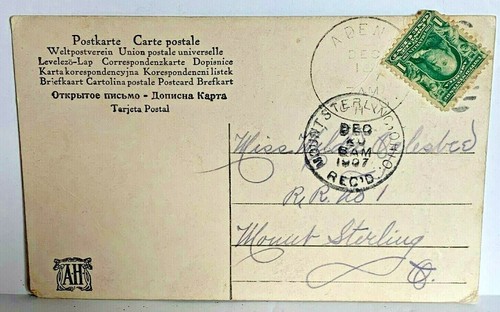 Postkarte Carte postale
Weltpostverein Union postale universelle
Levelező-Lap Correspondenzkarte Dopisnice
Karta korespondencyjna Korespondencni listek
Briefkaart Cartolina postale Postcard Brefkart
Открытое письмо - Дописна Карта
Tarjeta Postal
DEC
AM
MOUNT STERLING, OHIO
DEC
6 AM
1907
REC'D.
1
Miss
R.R. no 1
Mount Sterling
O.
AH